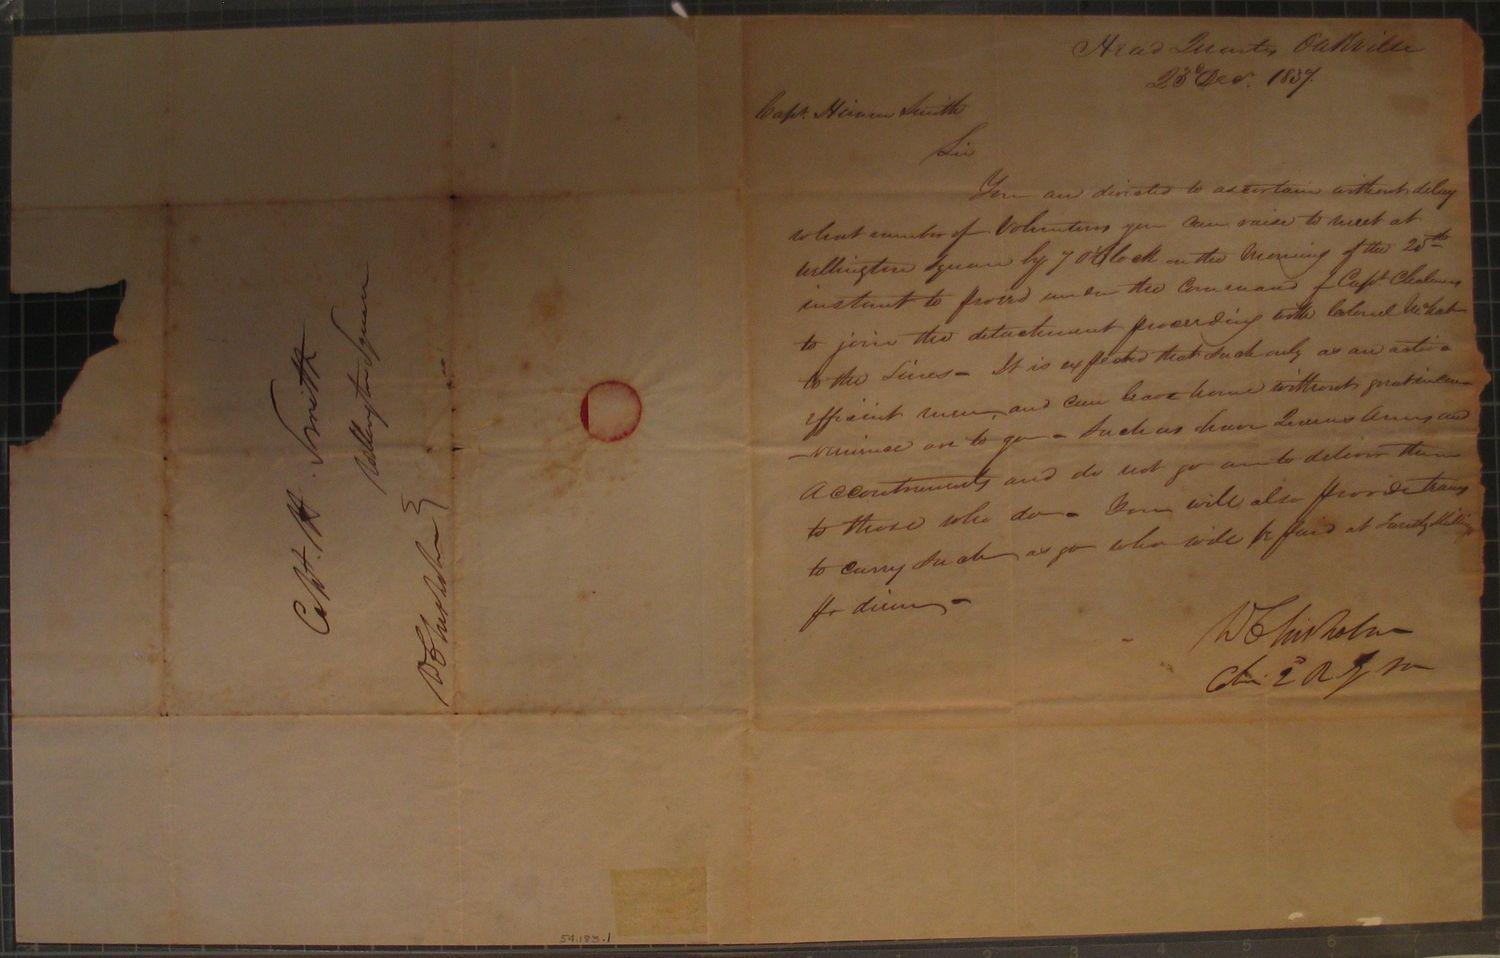 Head Quarters Oakville
23d Decr. 1837.
Capt. Hiram Smith
Sir
You are directed to ascertain without delay
what number of Volunteers you can raise to meet at
Wellington Square by 7 OClock on the Morning of the 25th
instant to proceed under the Command of Capt. Chalmers
to join the detachment proceeding with Colonel McNab
to the Lines - It is expected that such only as are active
efficient men, and can leave home without great incon-
-venience are to go - Such as have Queens Arms and
Accoutrements and do not go are to deliver them
to those who do - You will also provide teams
to carry such as go who will be paid at Twenty Shillings
pr diem -
W Chisholm
2d R G M
Capt. H. Smith
Wellington Square
W Chisholm
54.183.1